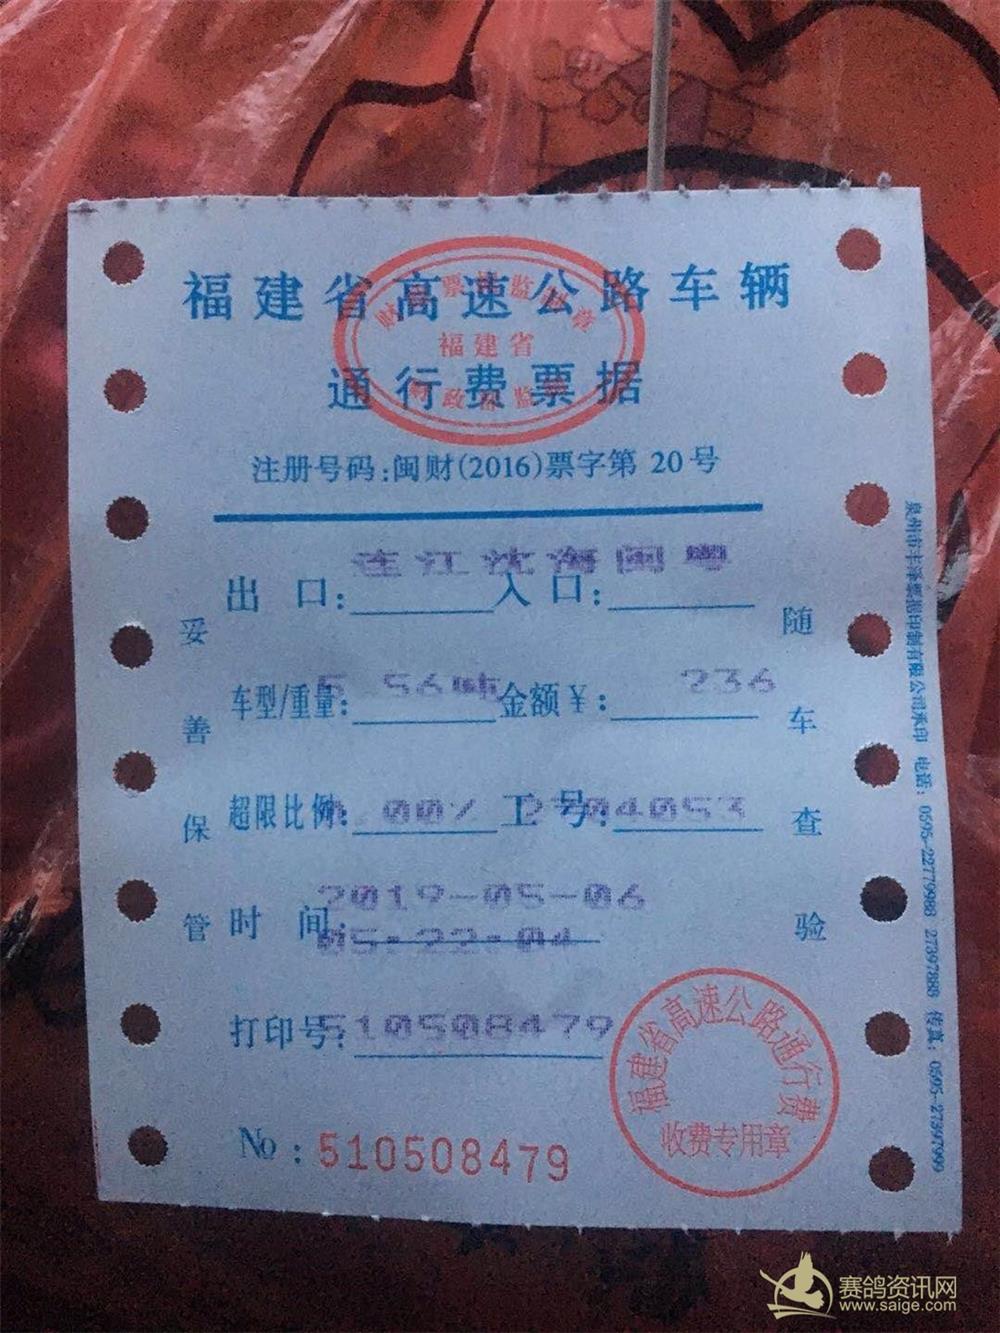 福建省高速公路车辆
通行费票据
福建省
注册号码:闽财(2016)票字第 20号
连江沈海闽粤
出 口: 入 口:
车型/重量: 56吨 金额¥: 236
超限比例: .00% 工 号: 2704053
时 间: 2019-05-06
05:22:04
打印号: 510508479
No : 510508479
妥善保管
随车查验
福建省高速公路通行费
收费专用章
泉州市丰泽票据印制有限公司承印 电话: 0595-22779988 27397888 传真: 0595-27397999
赛鸽资讯网
www.saige.com